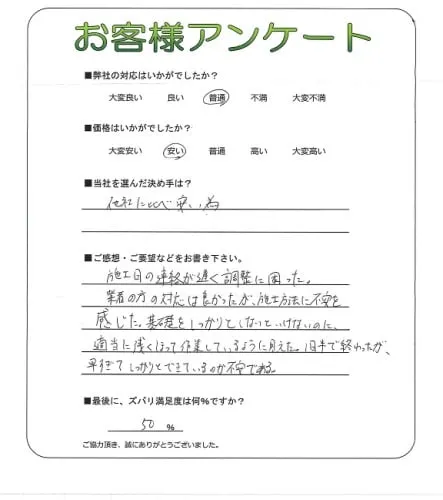 お客様アンケート
■弊社の対応はいかがでしたか？
大変良い 良い 普通 不満 大変不満
■価格はいかがでしたか？
大変安い 安い 普通 高い 大変高い
■当社を選んだ決め手は？
他社にくらべ安い為
■ご感想・ご要望などをお書き下さい。
施工日の連絡が遅く調整に困った。
業者の方の対応は良かったが、施工方法に不安を
感じた。基礎をしっかりとしないといけないのに、
適当に浅くほって作業しているように見えた。1日半で終わったが、
早すぎてしっかりとできているのか不安である。
■最後に、ズバリ満足度は何％ですか？
50 %
ご協力頂き、誠にありがとうございました。